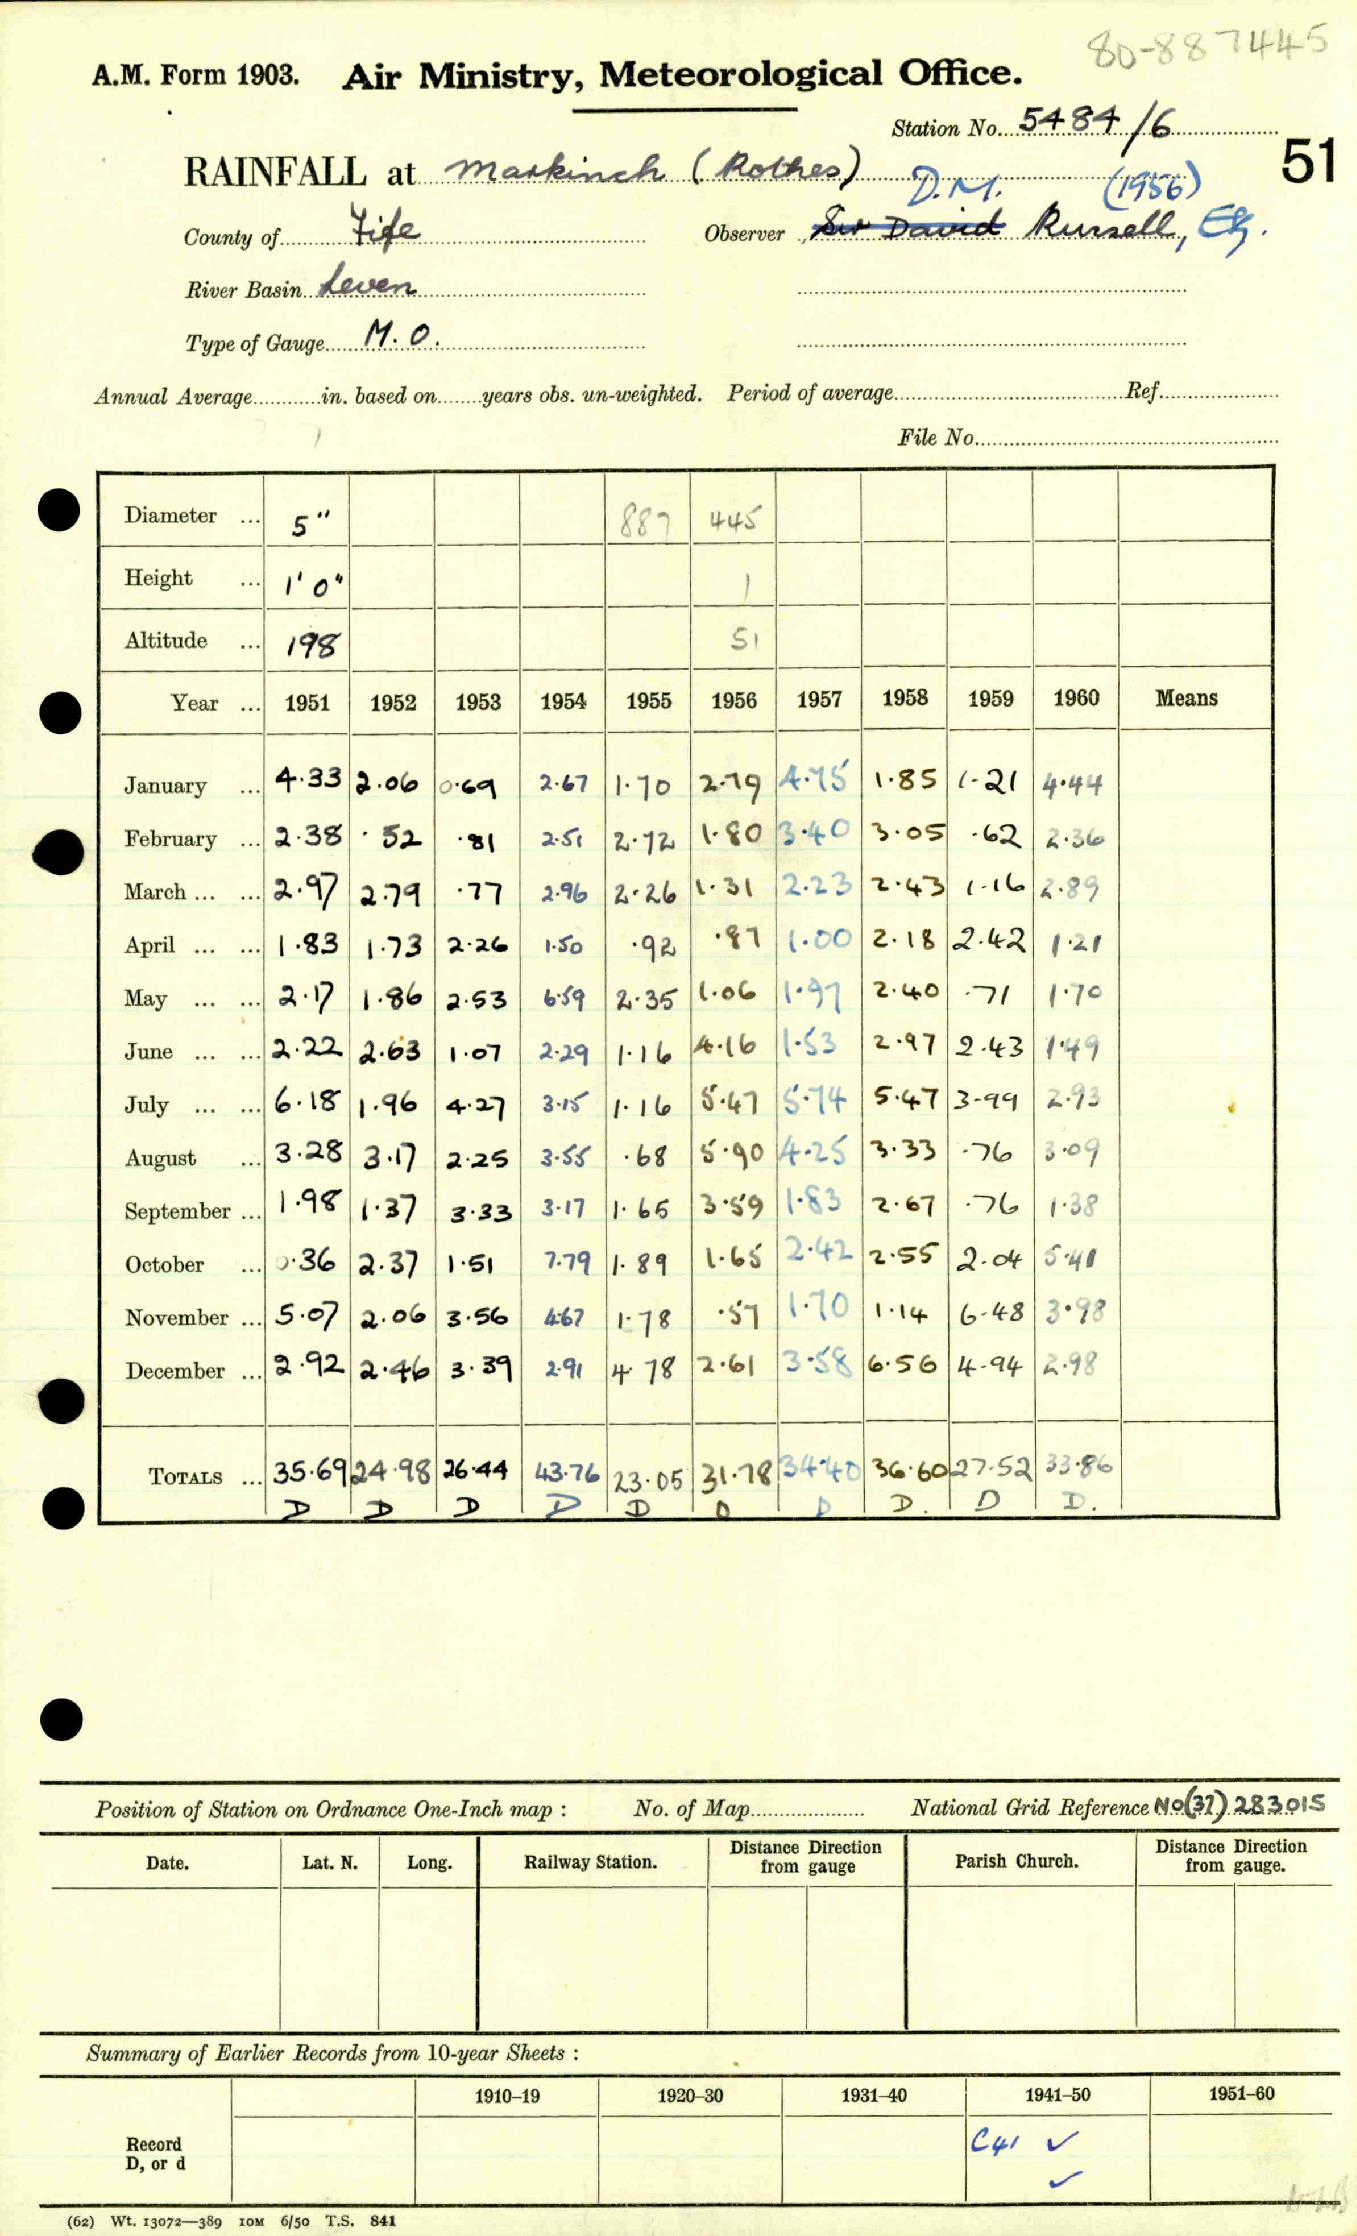 80-887445
A.M. Form 1903. Air Ministry, Meteorological Office.
Station No. 5484/6
51
RAINFALL at Markinch (Rothes)
D.M. (1956)
County of Fife Observer Sir David Russell, Esq.
River Basin Leven
Type of Gauge M.O.
Annual Average in. based on years obs. un-weighted. Period of average Ref.
File No.
Diameter ... 5" 887 445
Height ... 1' 0" 1
Altitude ... 198 51
Year ... 1951 1952 1953 1954 1955 1956 1957 1958 1959 1960 Means
January ... 4.33 2.06 0.69 2.67 1.70 2.79 4.75 1.85 1.21 4.44
February ... 2.38 .52 .81 2.51 2.72 1.80 3.40 3.05 .62 2.36
March ... ... 2.97 2.79 .77 2.96 2.26 1.31 2.23 2.43 1.16 2.89
April ... ... 1.83 1.73 2.26 1.50 .92 .87 1.00 2.18 2.42 1.21
May ... ... 2.17 1.86 2.53 6.59 2.35 1.06 1.97 2.40 .71 1.70
June ... ... 2.22 2.63 1.07 2.29 1.16 4.16 1.53 2.97 2.43 1.49
July ... ... 6.18 1.96 4.27 3.15 1.16 5.47 5.74 5.47 3.99 2.93
August ... 3.28 3.17 2.25 3.55 .68 5.90 4.25 3.33 .76 3.09
September ... 1.98 1.37 3.33 3.17 1.65 3.59 1.83 2.67 .76 1.38
October ... 0.36 2.37 1.51 7.79 1.89 1.65 2.42 2.55 2.04 5.41
November ... 5.07 2.06 3.56 4.67 1.78 .57 1.70 1.14 6.48 3.98
December ... 2.92 2.46 3.39 2.91 4.78 2.61 3.58 6.56 4.94 2.98
TOTALS ... 35.69 24.98 26.44 43.76 23.05 31.78 34.40 36.60 27.52 33.86
D D D D D D D D. D D.
Position of Station on Ordnance One-Inch map : No. of Map National Grid Reference NO(37) 283015
Date. Lat. N. Long. Railway Station. Distance Direction from gauge Parish Church. Distance Direction from gauge.
Summary of Earlier Records from 10-year Sheets :
1910–19 1920–30 1931–40 1941–50 1951–60
Record D, or d C41 ✓
✓
(62) Wt. 13072—389 10M 6/50 T.S. 841